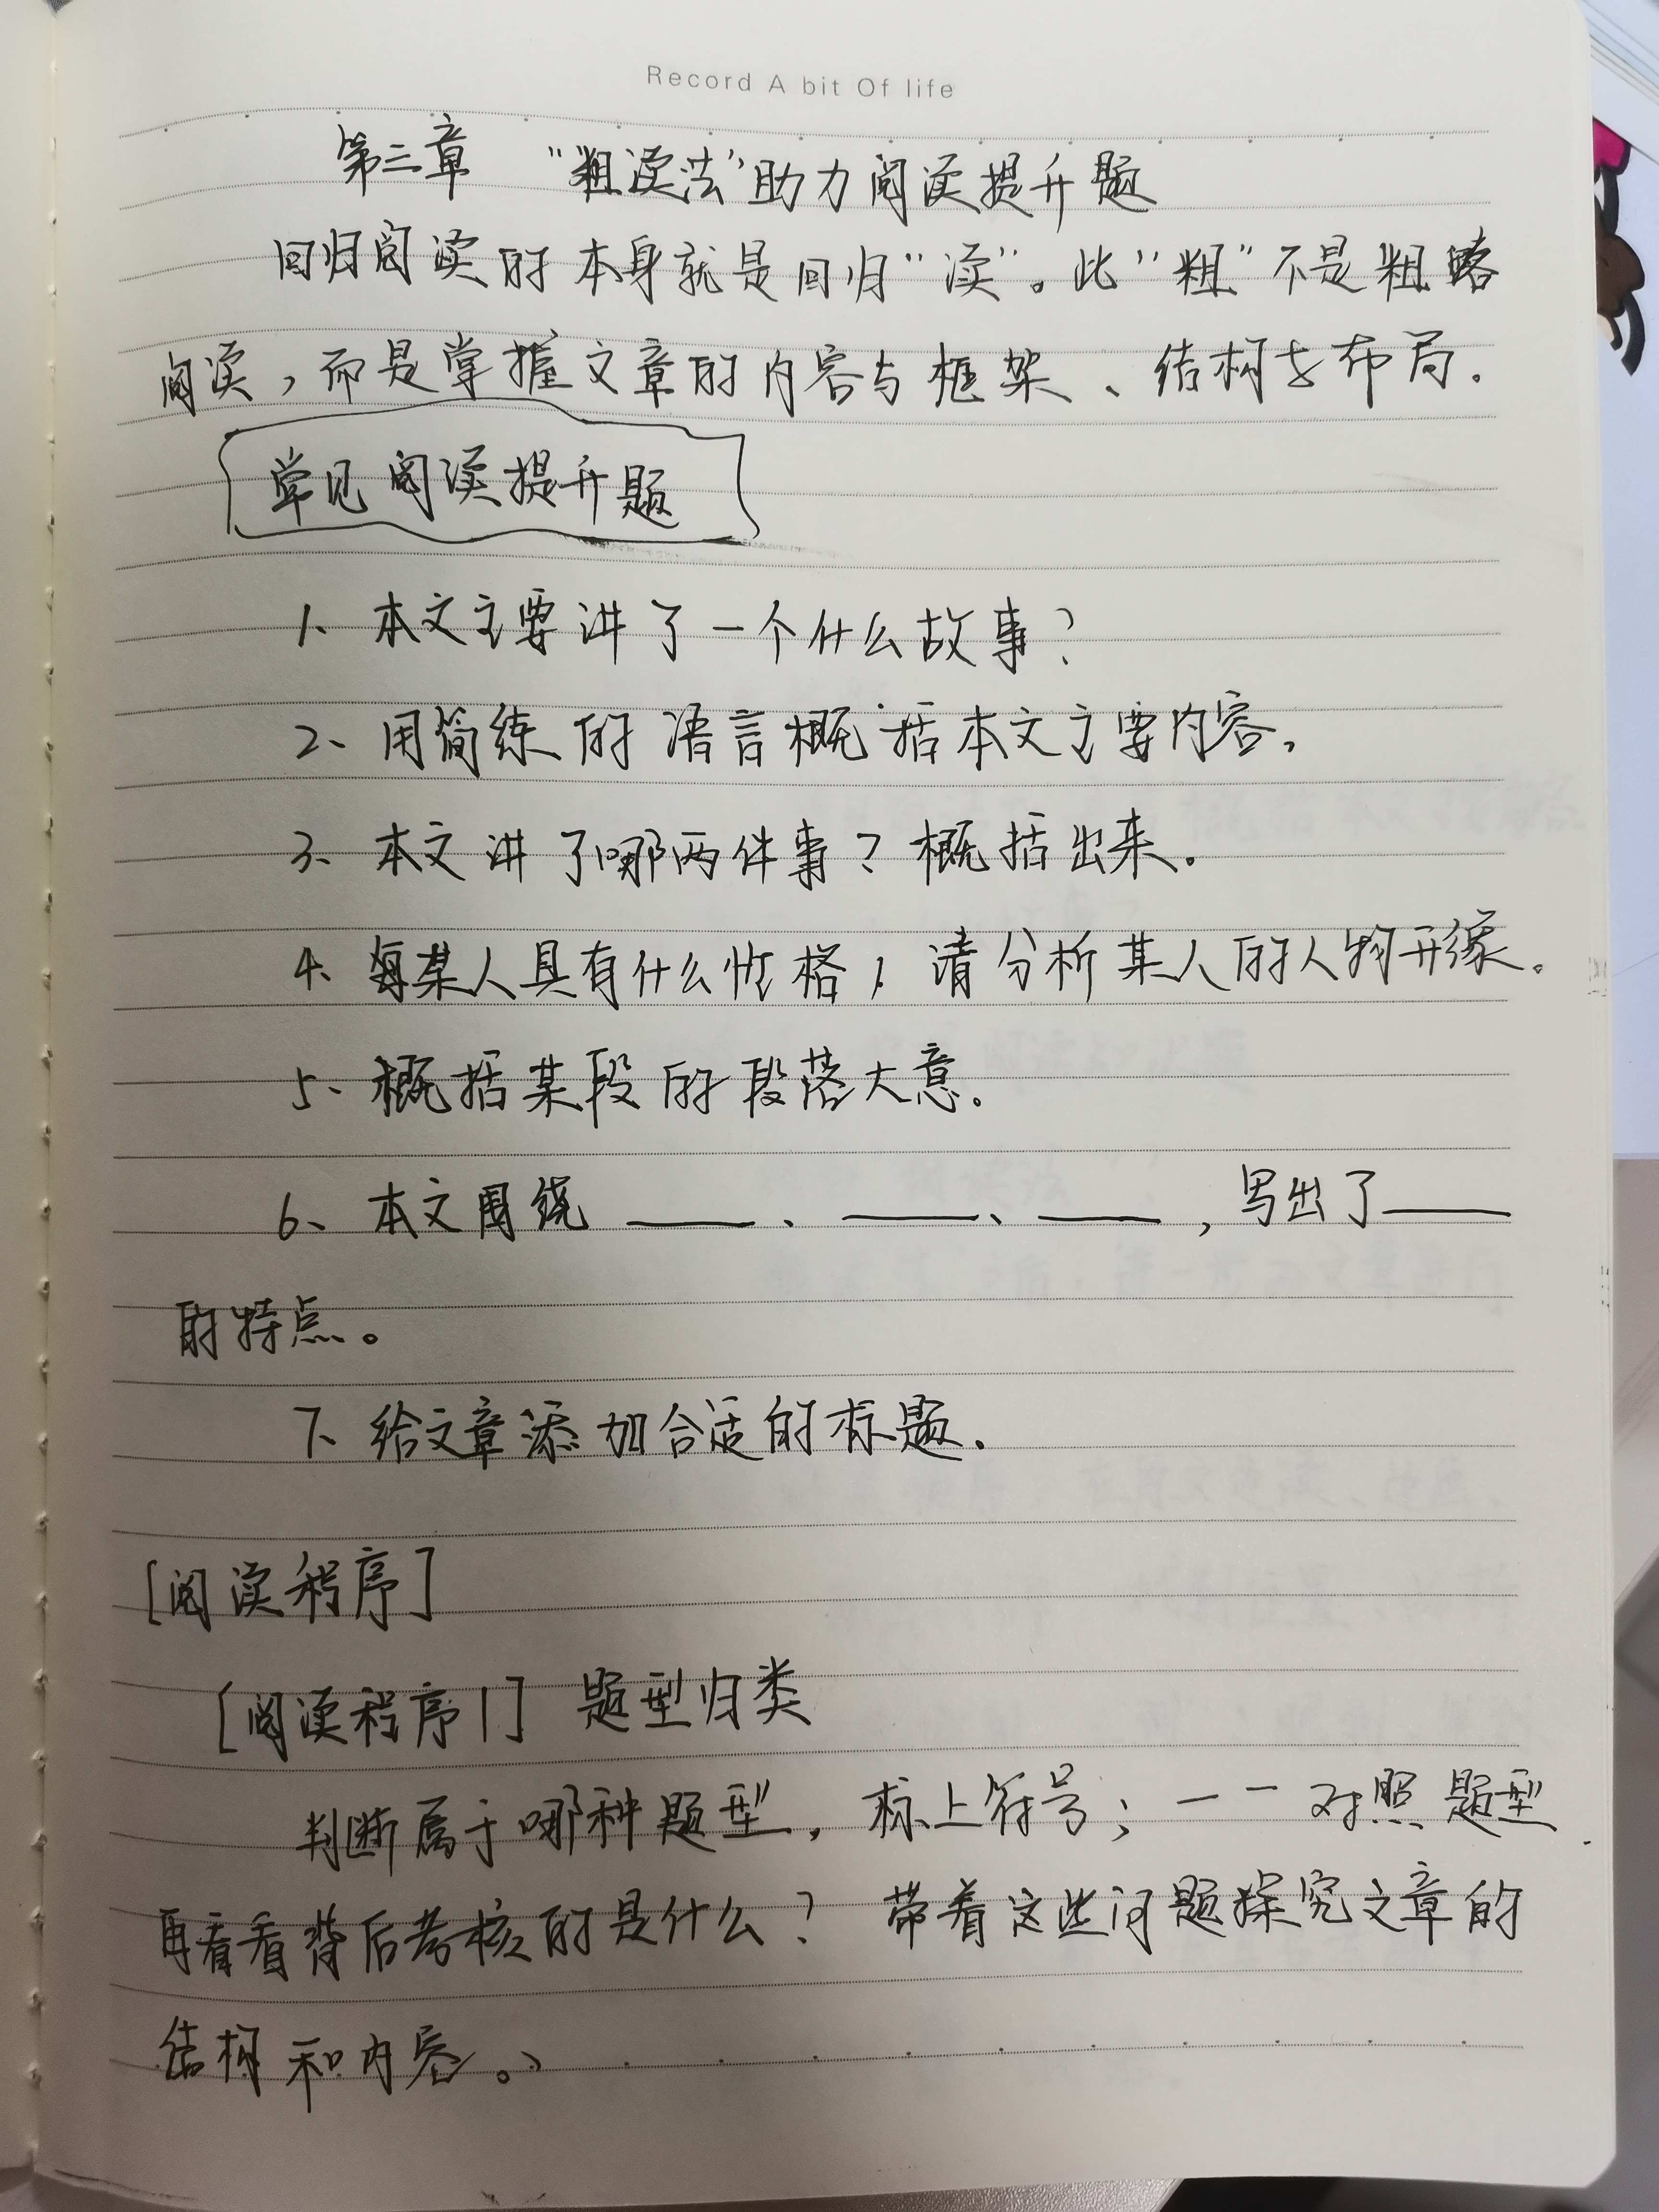 Record A bit Of life
第三章 “粗读法”助力阅读提升题
回归阅读的本身就是回归“读”。此“粗”不是粗略
阅读，而是掌握文章的内容与框架、结构与布局.
常见阅读提升题
1、本文主要讲了一个什么故事?
2、用简练的语言概括本文主要内容,
3、本文讲了哪两件事? 概括出来.
4、某人具有什么性格，请分析某人的人物形象。
5、概括某段的段落大意.
6、本文围绕____、____、____，写出了____
的特点。
7、给文章添加合适的标题.
[阅读程序]
[阅读程序1] 题型归类
判断属于哪种题型，标上符号；一一对照题型.
再看看背后考核的是什么? 带着这些问题探究文章的
结构和内容。